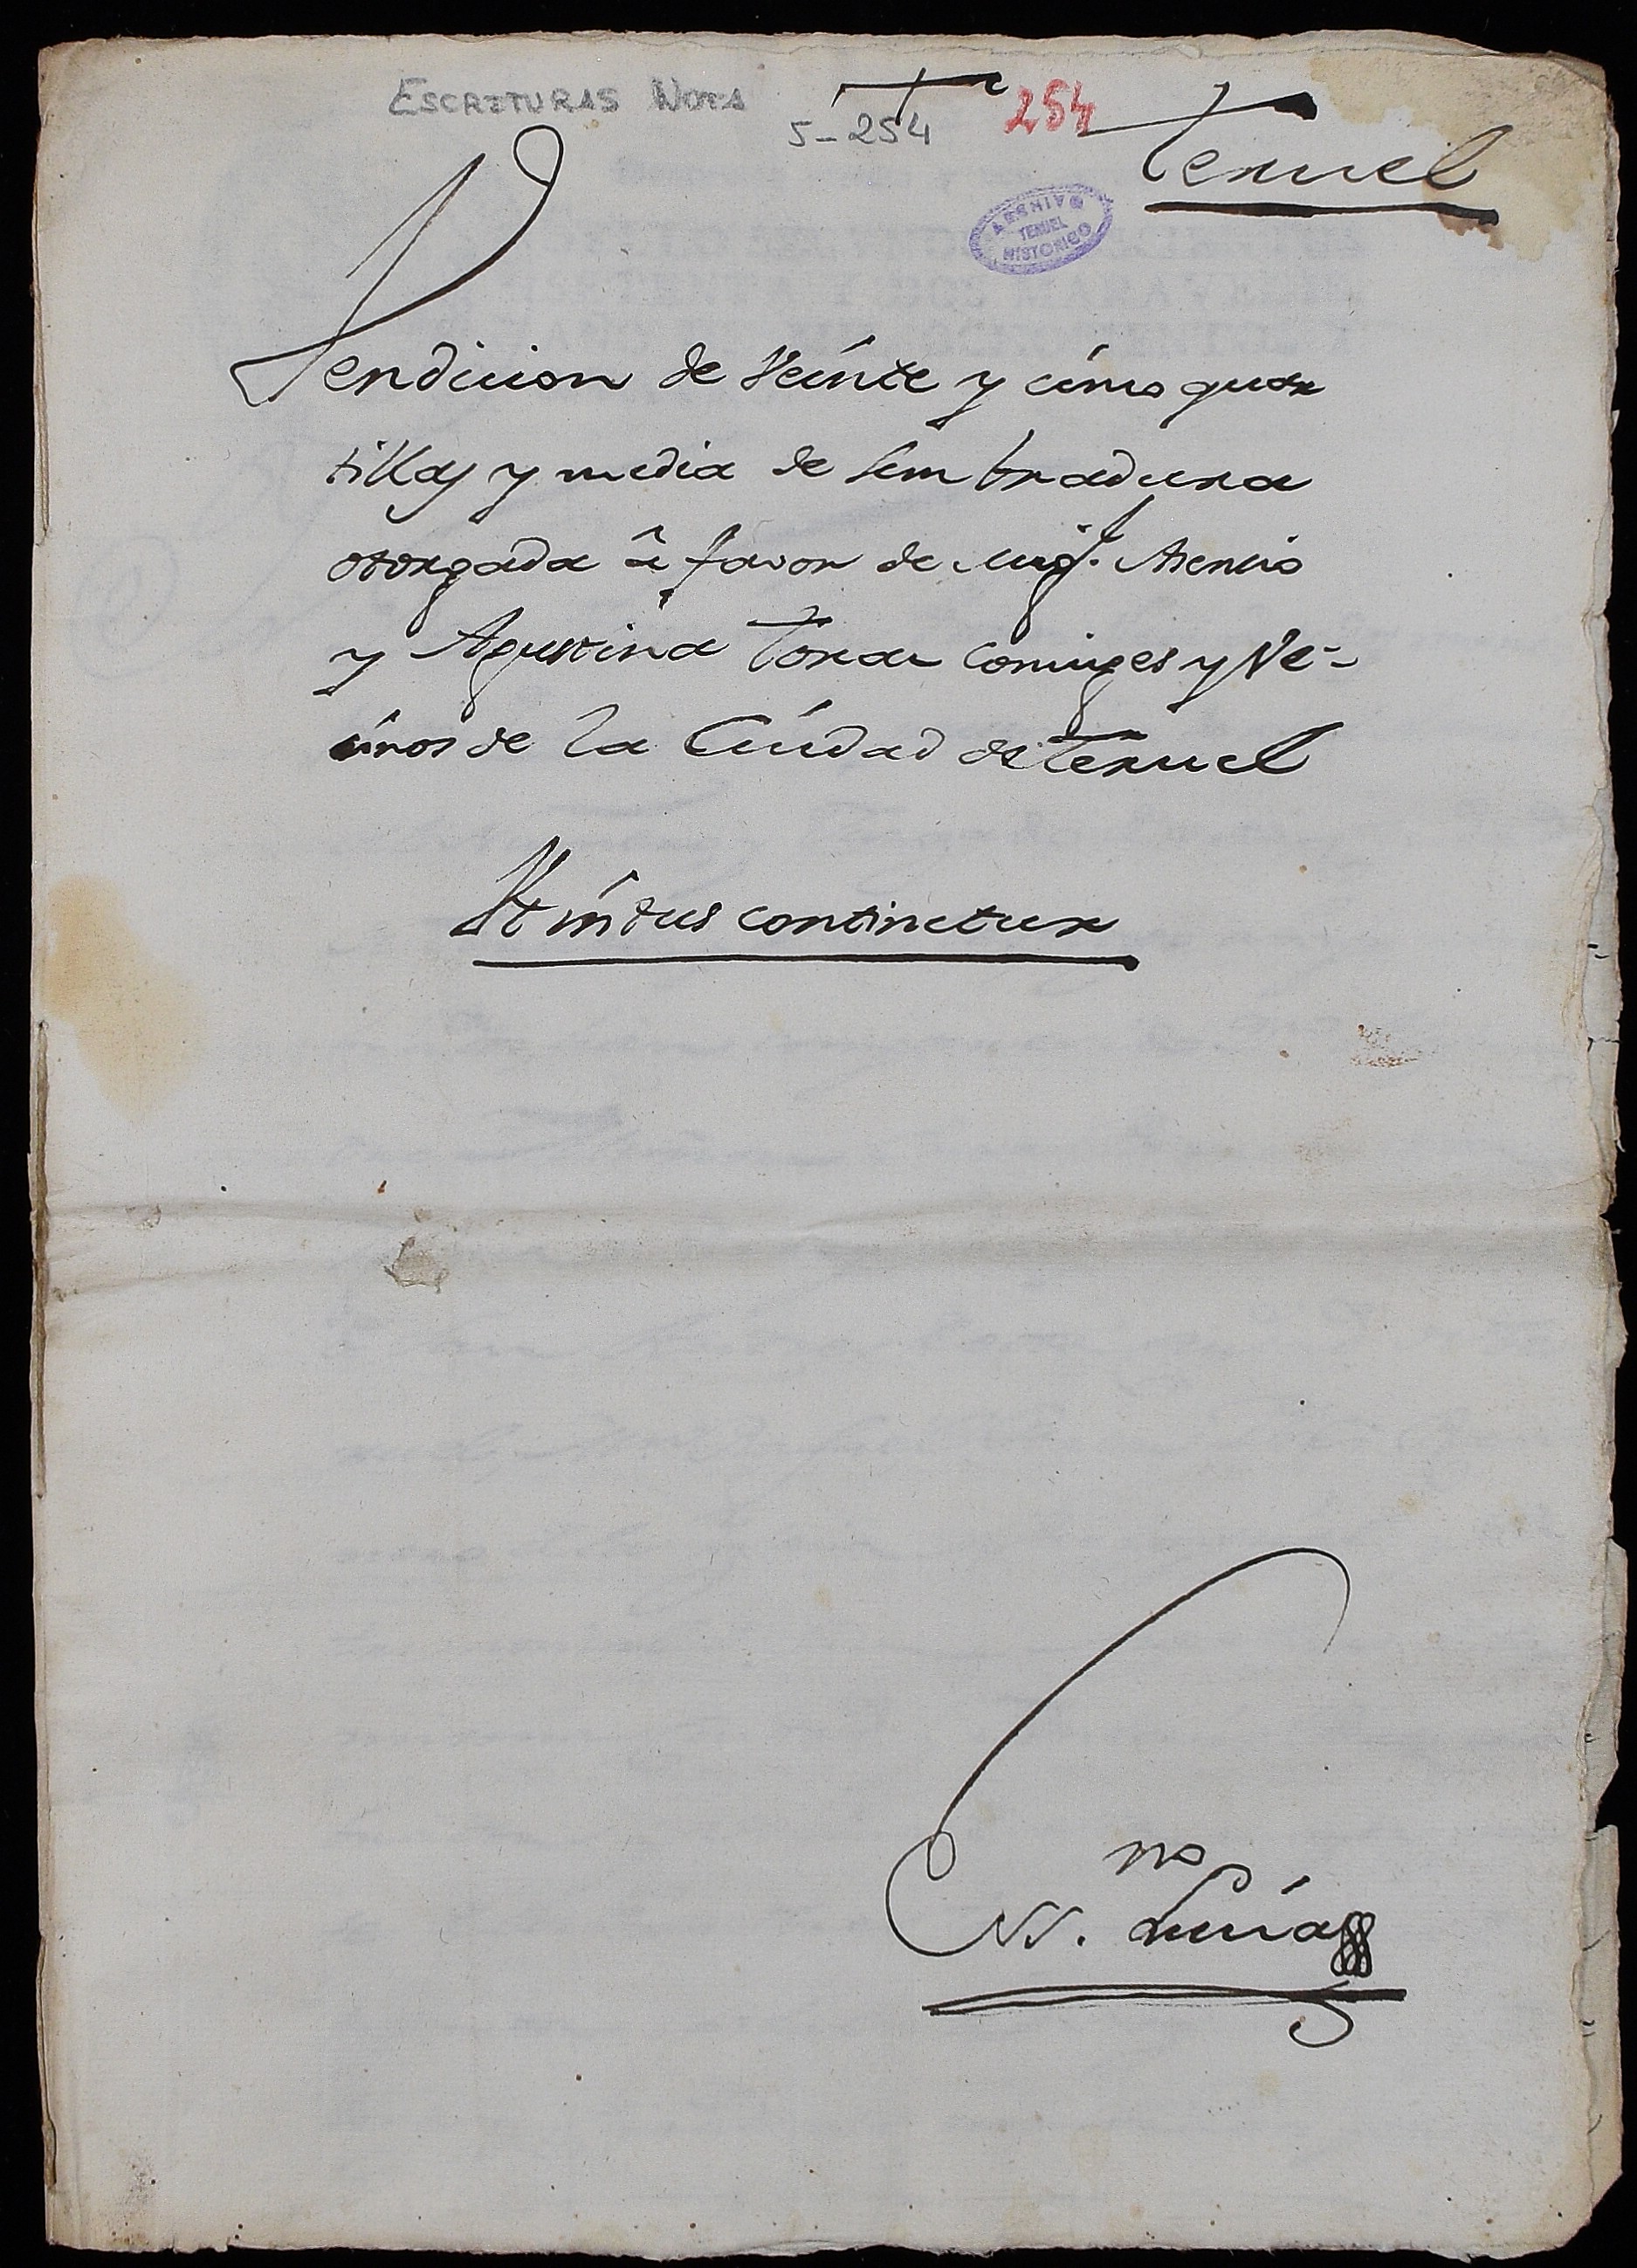 ESCRITURAS NOTA
5-254
254
Teruel
ARCHIVO
TERUEL
HISTORICO
Vendicion de Veinte y cinco quar
tillas y media de sembradura
otorgada â favor de Migl. Asensio
y Agustina Torar Coniuges y Ve-
cinos de la Ciudad de Teruel
Vt intus continetur